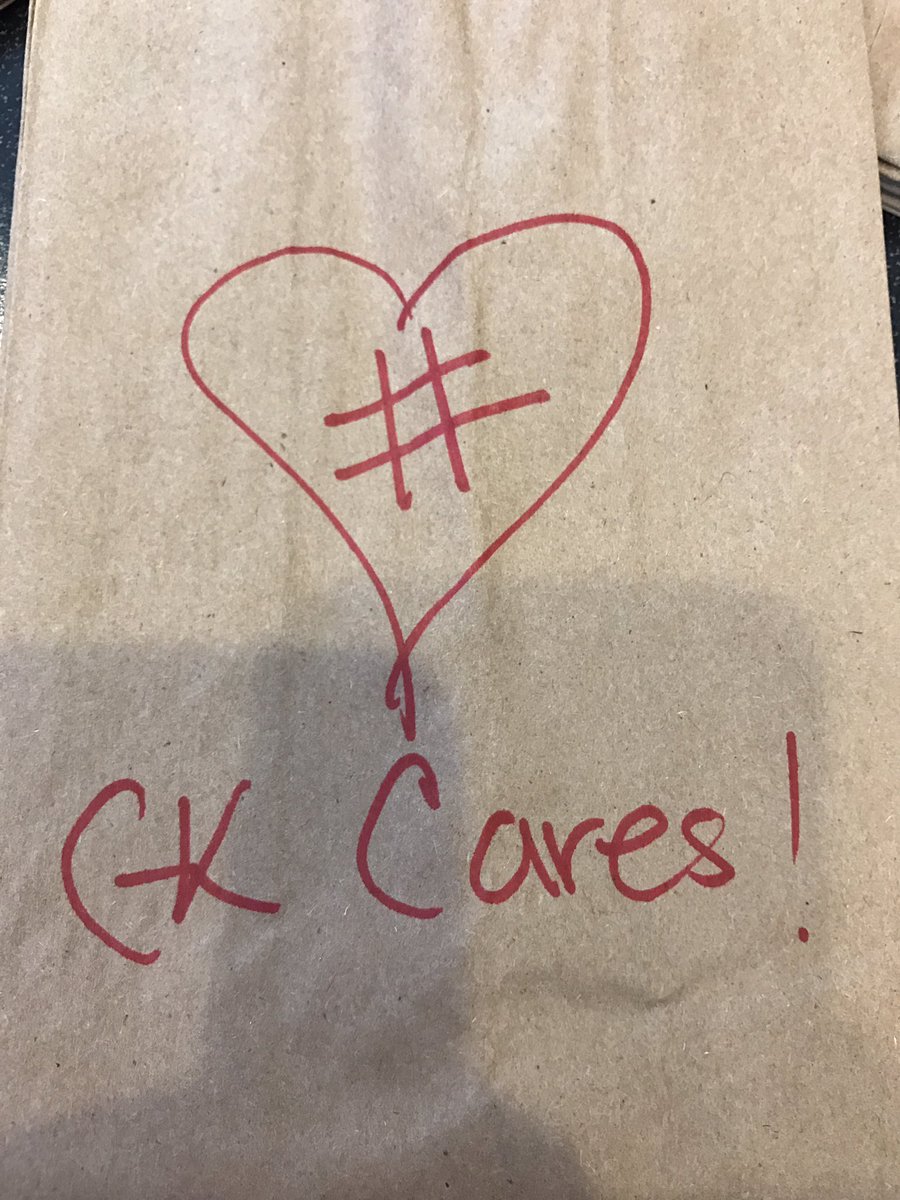 #
CK Cares!